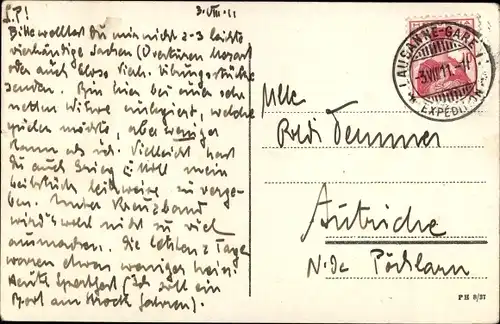 L.P! 3.VIII.11
Bitte wolltest Du mir nicht 2-3 leichte
vierhändige Sachen (Overtüren Mozart
oder auch bloss Viol. Übungsstücke
senden. Bin hier bei einer sehr
netten Witwe, welche
spielen möchte, aber weniger
kann als ich. Vielleicht hast
Du auch Grieg II. Teil mein
leihweise zu verge-
ben. Unter Kreuzband
wird's wohl nicht zu viel
ausmachen. Die letzten 2 Tage
waren etwas weniger heiss.
Heute (Ich soll ein
am fahren).
LAUSANNE-GARE
3.VIII.11.-11
EXPÉDITION
Mlle
Demmer
Autriche
N.Oe Pöchlarn
PH 8/37